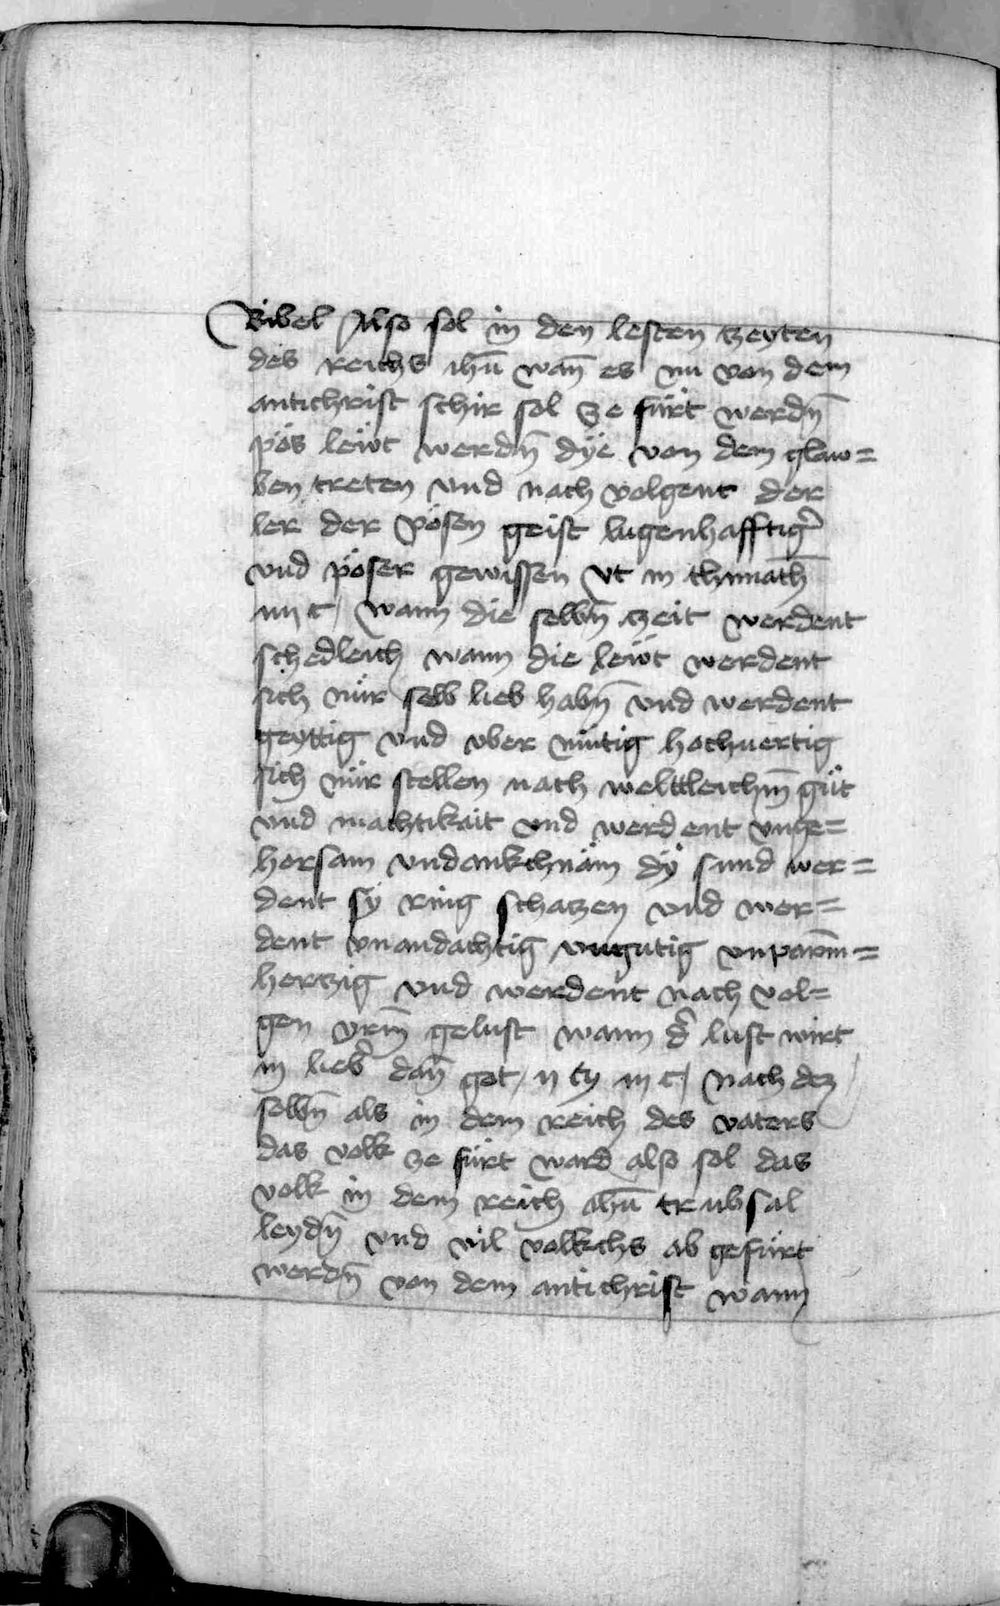 Bibel Also sol in den lesten tzeyten
des reichs ihū wān es nu von dem
antichrist schir sol ze fürt werdn̄
pös lewt werdn̄ dÿe von dem glaw=
ben treten vnd nach volgent der
ler der pösen geist lugenhafftig̃
vnd pöser gewissen vt in thimoth̄
iiii c / wann die selbn̄ tzeit werdent
schedleich wann die lewt werdent
sich nür selb lieb habn̄ vnd werdent
geyttig vnd vber mütig hochuertig
sich nür stellen nach welttleichm̄ güt
vnd machtikait vnd werdent vnge=
horsam vndankchnäm dÿ sund wer=
dent sÿ ring schatzen vnd wer=
dent vnandachtig vngütig vnparm̄=
hertzig vnd werdent nach vol=
gen yrm̄ gelust wann d̃ lust wirt
in lieb̃ dan̄ got / ii ty iii c / nach dez
selbn̄ als in dem reich des vaters
das volk ze fürt ward also sol das
volk in dem reich ihū trubsal
leydn̄ vnd vil volkchs ab gefürt
werdn̄ von dem antichrist wann